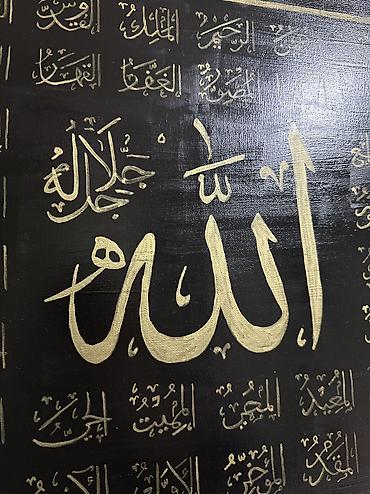 الرحيم الملك القدوس
المصور الغفار القهار
الله
جل جلاله
المعيد المحيي المميت الحي
المقدم المؤخر الأول الآخر